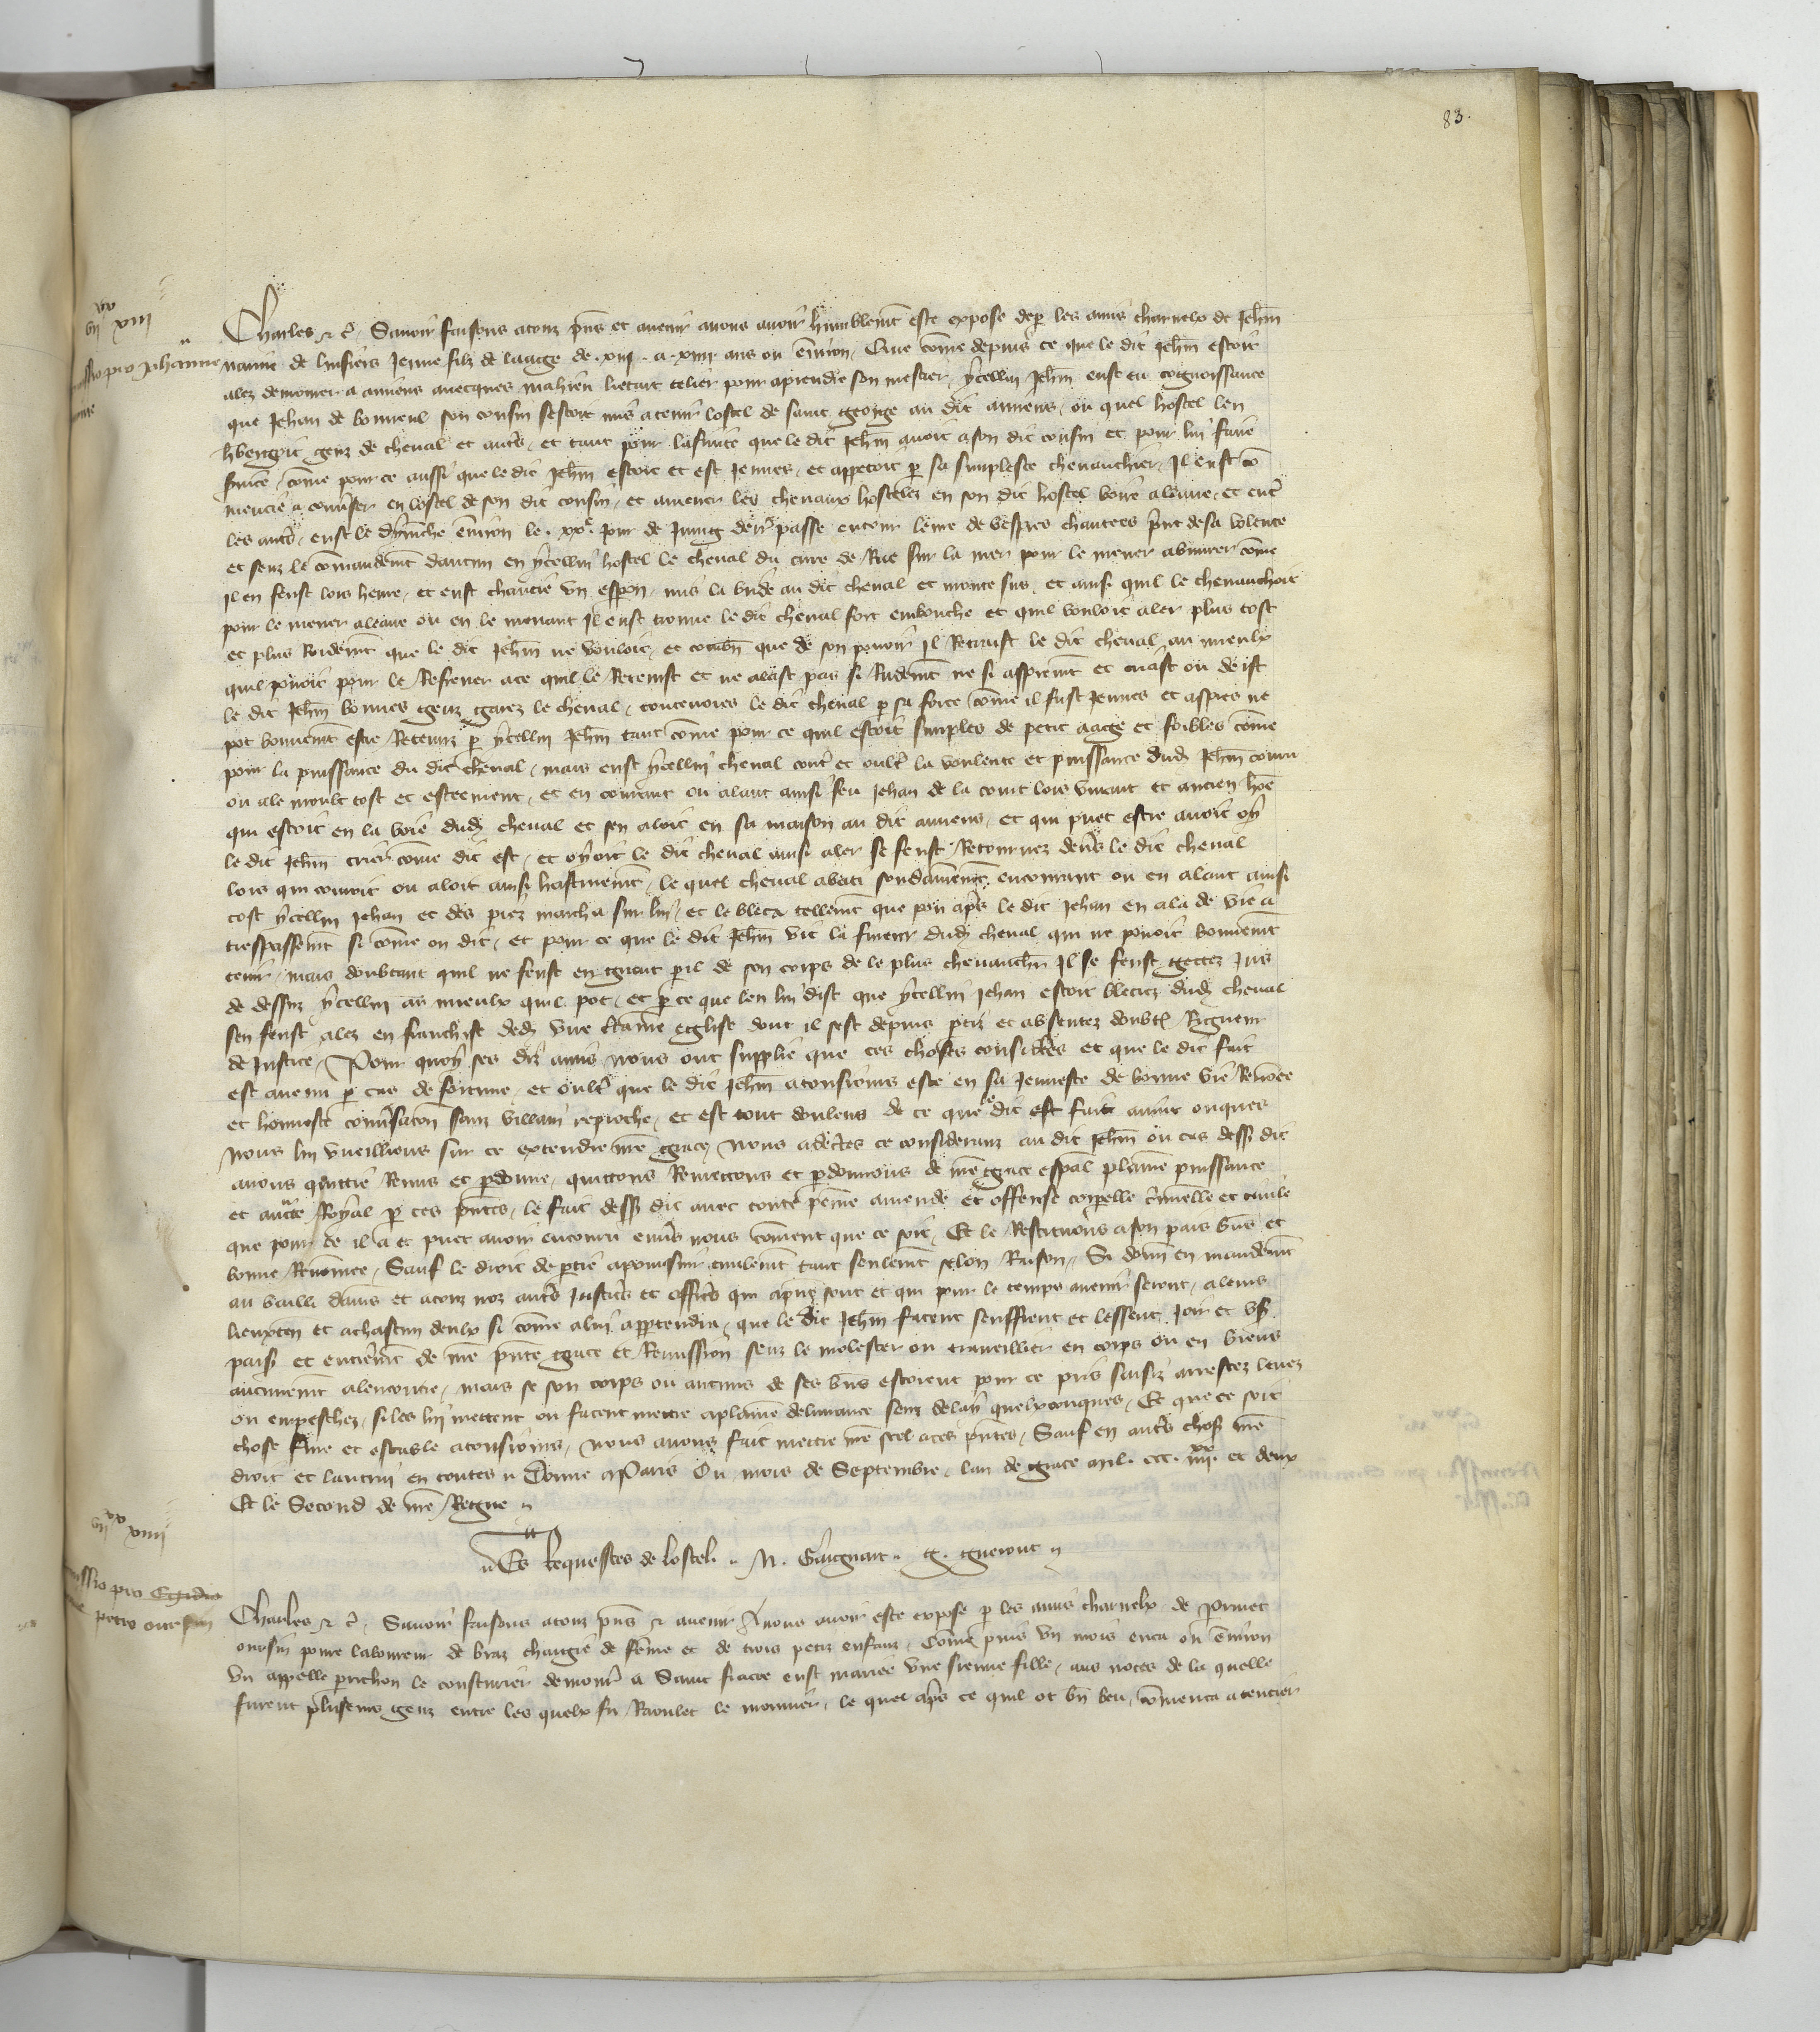 83.
vii xx xiiii
Remissio pro Johanne
Charles &c. Savoir faisons a touz pñs et avenir nous avoir humblemt este expose de p les amis charnelx de Jehñ
naime de linsiers Jenne filz de laage de .xiij. a .xiiij. ans ou environ, Que cõme depuis ce que le dit Jehñ estoit
alez demourer a amiens avecques mahieu lietart telier pour aprendre son mestier, ycellui Jehñ eust eu cognoissance
que Jehan de bonneul son cousin sestoit mis a tenir lostel de saint george au dit amiens, ou quel hostel len
hbergoit genz de cheval et autˢ, et tant pour lafinite que le dit Jehñ avoit a son dit cousin et pour lui faire
service, cõme pour ce aussi que le dit Jehñ estoit et est Jennes, et appetoit p sa simplesce chevauchier, Il eust cõ
mencie a convˢer en lostel de son dit cousin, et amener les chevaux hostelez en son dit hostel boire a leaue, et entˢ
les autˢ, eust le dymẽche environ le .xxᵉ. Jour de Juing derr passe entour leure de vespres chantees prins de sa volente
et senz le cõmandemt daucun en ycellui hostel le cheval du cure de Rue sur la mer pour le mener abuvrer cõme
Il en feust lors heure, et eust chaucie un espon, mis la bride au dit cheval et monte sus, et ainsi quil le chevauchoit
pour le mener a leaue ou en le menant Il eust trouve le dit cheval fort embouche et quil vouloit aler plus tost
et plus Roidemt que le dit Jehñ ne vouloit, et combñ que de son povoir Il Retenist le dit cheval au mieulx
quil povoit pour le Refrener a ce quil le Retenist et ne alast pas si Rudemt ne si asprement et criast ou deist
le dit Jehñ bonnes genz garez le cheval, toutevoies le dit cheval p sa force cõme il fust Jennes et aspres ne
pot bonnemt estre Retenuz p ycellui Jehñ tant cõme pour ce quil estoit simples de petit aage et foibles cõme
pour la puissance du dit cheval, mais eust ycellui cheval contˢ et oultˢ la voulente et puissance dud Jehñ couru
ou ale moult tost et esteement, et en courant ou alant ainsi feu Jehan de la court lors vivant et ancien hõe
qui estoit en la voie dud cheval et sen aloit en sa maison au dit amiens, et qui puet estre avoit oy
le dit Jehñ crier cõme dit est, et oyoit le dit cheval ainsi aler se feust Retournez devˢs le dit cheval
lors qui couroit ou aloit ainsi hastivemt, le quel cheval abati soudainemt encourant ou en alant ainsi
tost ycellui Jehan et des piez marcha sur lui, et le bleca tellemt que pou apˢs le dit Jehan en ala de vie a
trespassemt si cõme on dit, et pour ce que le dit Jehñ vit la fureur dud cheval qui ne povoit bonnemt
tenir, mais doubtant quil ne feust en grant pil de son corps de le plus chevauchr Il se feust gettez Jus
de dessuz ycellui au mieulx quil pot, et p ce que len lui dist que ycellui Jehan estoit bleciez dud cheval
sen feust alez en franchise ded une ctaine eglise dont il sest depuis ptiz et absentez doubtˢ Rigueur
de Justice, Pour quoy ses diz amis nous ont supplie que ces choses considˢees et que le dit fait
est avenu p cas de fortune, et oultˢ que le dit Jehñ a tousiours este en sa Jennesce de bonne vie Renõee
et honneste convˢsacõn sanz villain reproche, et est tout doulens de ce que le dit est fait avint onques
Nous lui vueillions sur ce extendre nrẽ grace, Nous adcˢtes ce considerans au dit Jehñ ou cas dessˢ dit
avons quittie Remis et pdonne, quittons Remettons et pdonnons de nrẽ grace espal plaine puissance
et aucte Royal p ces pñtes, le fait dessˢ dit avec toute peine amende et offense corpelle cˢiminelle et civile
que pour ce il a et puet avoir encouru envˢs nous cõment que ce soit, Et le Restituons a son pais bñs et
bonne Renõmee, Sauf le droit de ptie a poursuir civilemt tant seulemt selon Raison, Si donñ en mandemt
au bailli damˢ et a touz noz autˢs Justicˢs et officˢs qui apñs sont et qui pour le temps avenir seront, a leurs
lieuxten et a chascun deulx si cõme a lui appartendra, que le dit Jehñ facent seuffrent et lessent Joir et usˢ
paisˢ et entieremt de nrẽ pñte grace et Remission senz le molester ou traveillier en corps ou en biens
aucunemt a lencontre, mais se son corps ou aucuns de ses bñs estoient pour ce pris saisiz arrestez levez
ou empeschez, si les lui mettent ou facent mettre a plaine delivrance senz delay quelxconques, Et que ce soit
chose ferme et estable a tousiours, Nous avons fait mettre nrẽ seel a ces pñtes, Sauf en autˢs chosˢ nrẽ
droit et lautrui en toutes. Donne a Paris Ou mois de Septembre, lan de grace mil. ccc. iiii xx. et deux
Et le Second de nrẽ Regne
Es Requestes de lostel. N. Gaignart. G. guerout
vii xx xiiii
Remissio pro Egidio
petro oursin
Charles &c. Savoir faisons a touz pñs & avenir A nous avoir este expose p les amis charnelx de perret
oursin povre laboureur de braz chargie de fẽme et de trois petiz enfanz, Cõme puis un mois enca ou environ
Un appelle perichon le cousturier demourˢ a Saint fiacre eust mariee une sienne fille, aus noces de la quelle
furent plusieurs genz entre les quelx fu Raoulet le monnier, le quel apˢs ce quil ot bñ beu, cõmenca a tencier